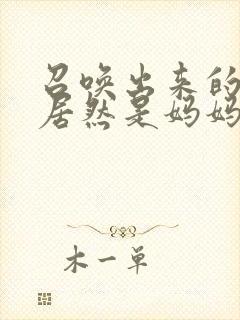 召唤出来的
居然是妈妈
木一单